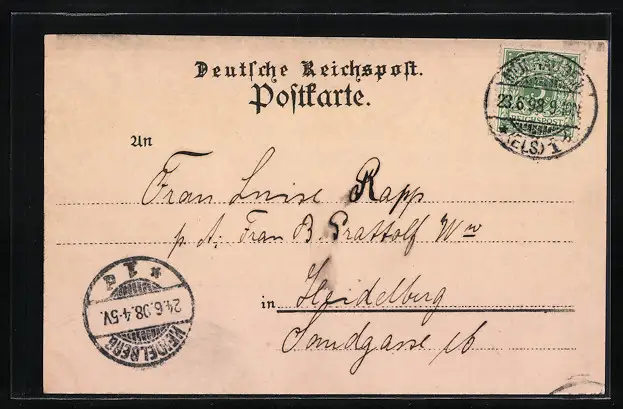 Deutsche Reichspost.
Postkarte.
5
REICHSPOST
23.6.98.9-10N
(ELS) 1
An
Frau Luise Rapp
p. A. Frau B. Prattolf Ww
in Heidelberg
Sandgasse 16
24.6.98.4-5V.
HEIDELBERG